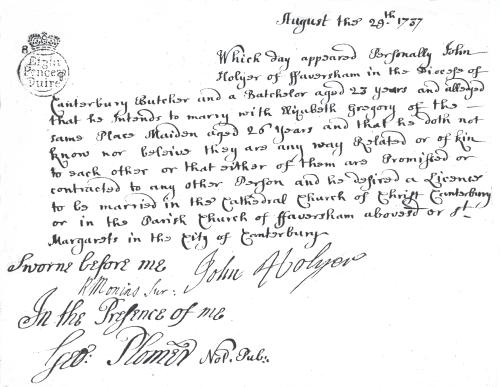 August the 29th. 1737
8
Eight
Pence p
Quire
Which day appeared Personally John
Holyer of ffaversham in the Diocese of
Canterbury Butcher and a Batchelor aged 23 years and alleged
that he Intends to marry with Elizabeth Gregory of the
same Place Maiden aged 26 Years and that he doth not
know nor beleive they are any way Related or of kin
to each other or that either of them are Promised or
contracted to any other Person and he desired a License
to be married in the Cathedral Church of Christ Canterbury
or in the Parish Church of ffaversham abovesd or St.
Margarets in the City of Canterbury
Sworne before me John Holyer
R Monins Sur:
In the Presence of me
Geo: Plomer Not. Pub: